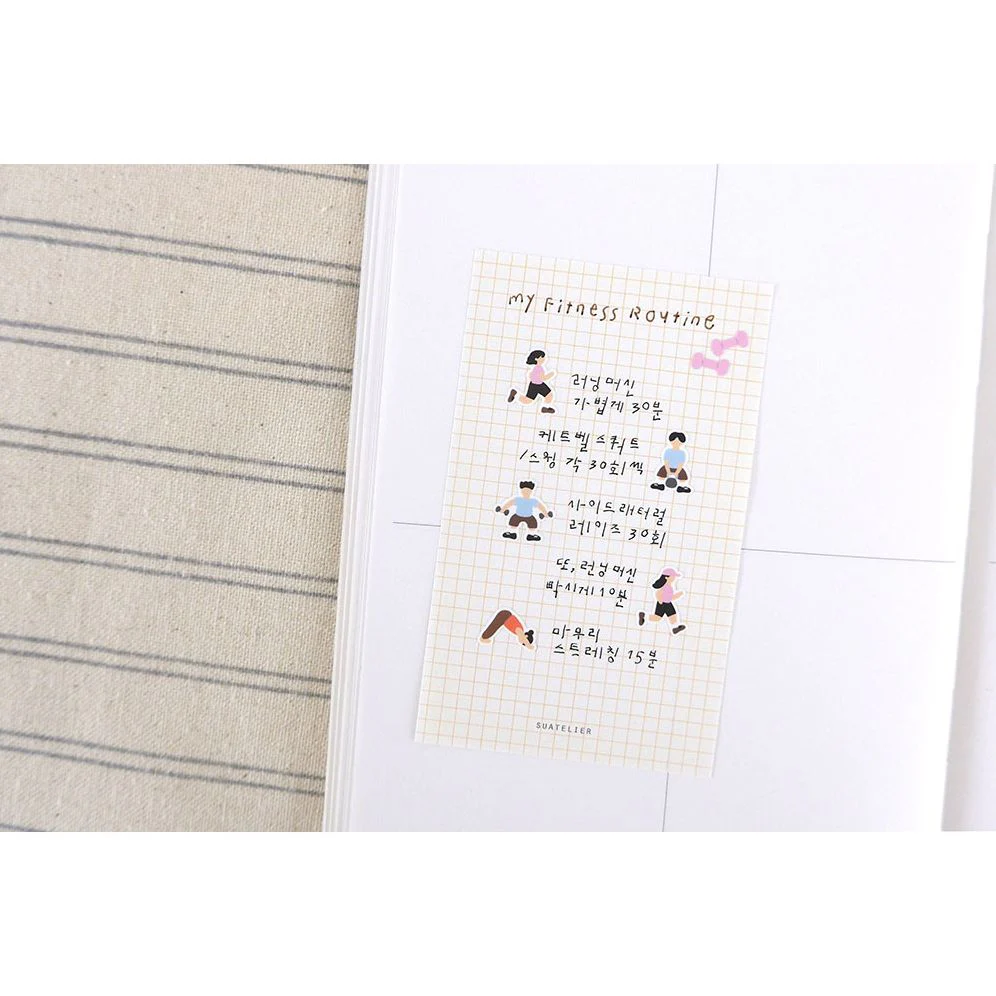 my Fitness Routine
러닝머신
가볍게 30분
케트벨 스쿼트
/스윙 각 30회씩
사이드래터럴
레이즈 30회
또, 런닝머신
빡시게 10분
마무리
스트레칭 15분
SUATELIER